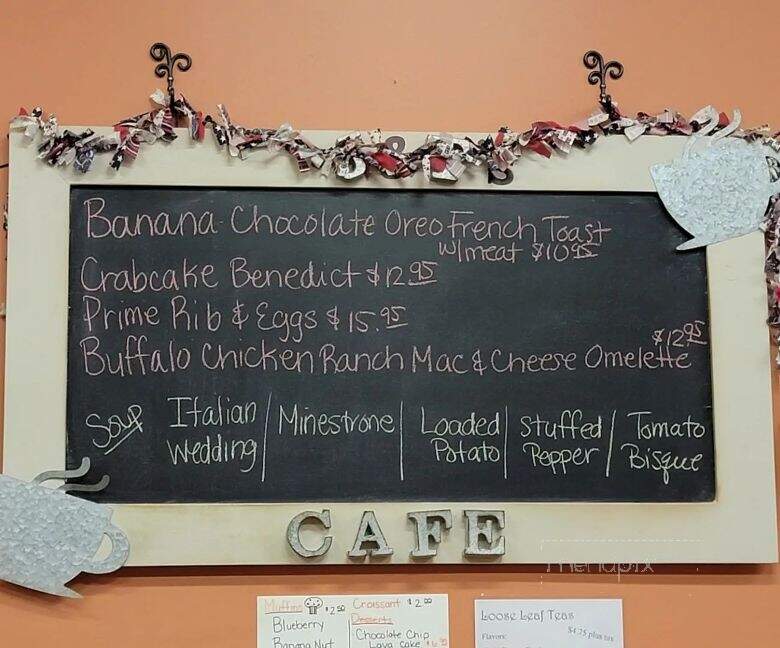 Banana Chocolate Oreo French Toast
w/meat $10.95
Crabcake Benedict $12.95
Prime Rib & Eggs $15.95
$12.95
Buffalo Chicken Ranch Mac & Cheese Omelette
Soup Italian Wedding / Minestrone | Loaded Potato | Stuffed Pepper / Tomato Bisque
CAFE
menupix
Muffins $2.50
Blueberry
Banana Nut
Croissant $2.00
Desserts
Chocolate Chip
Lava Cake
Loose Leaf Teas
Flavors: $4.25 plus tax